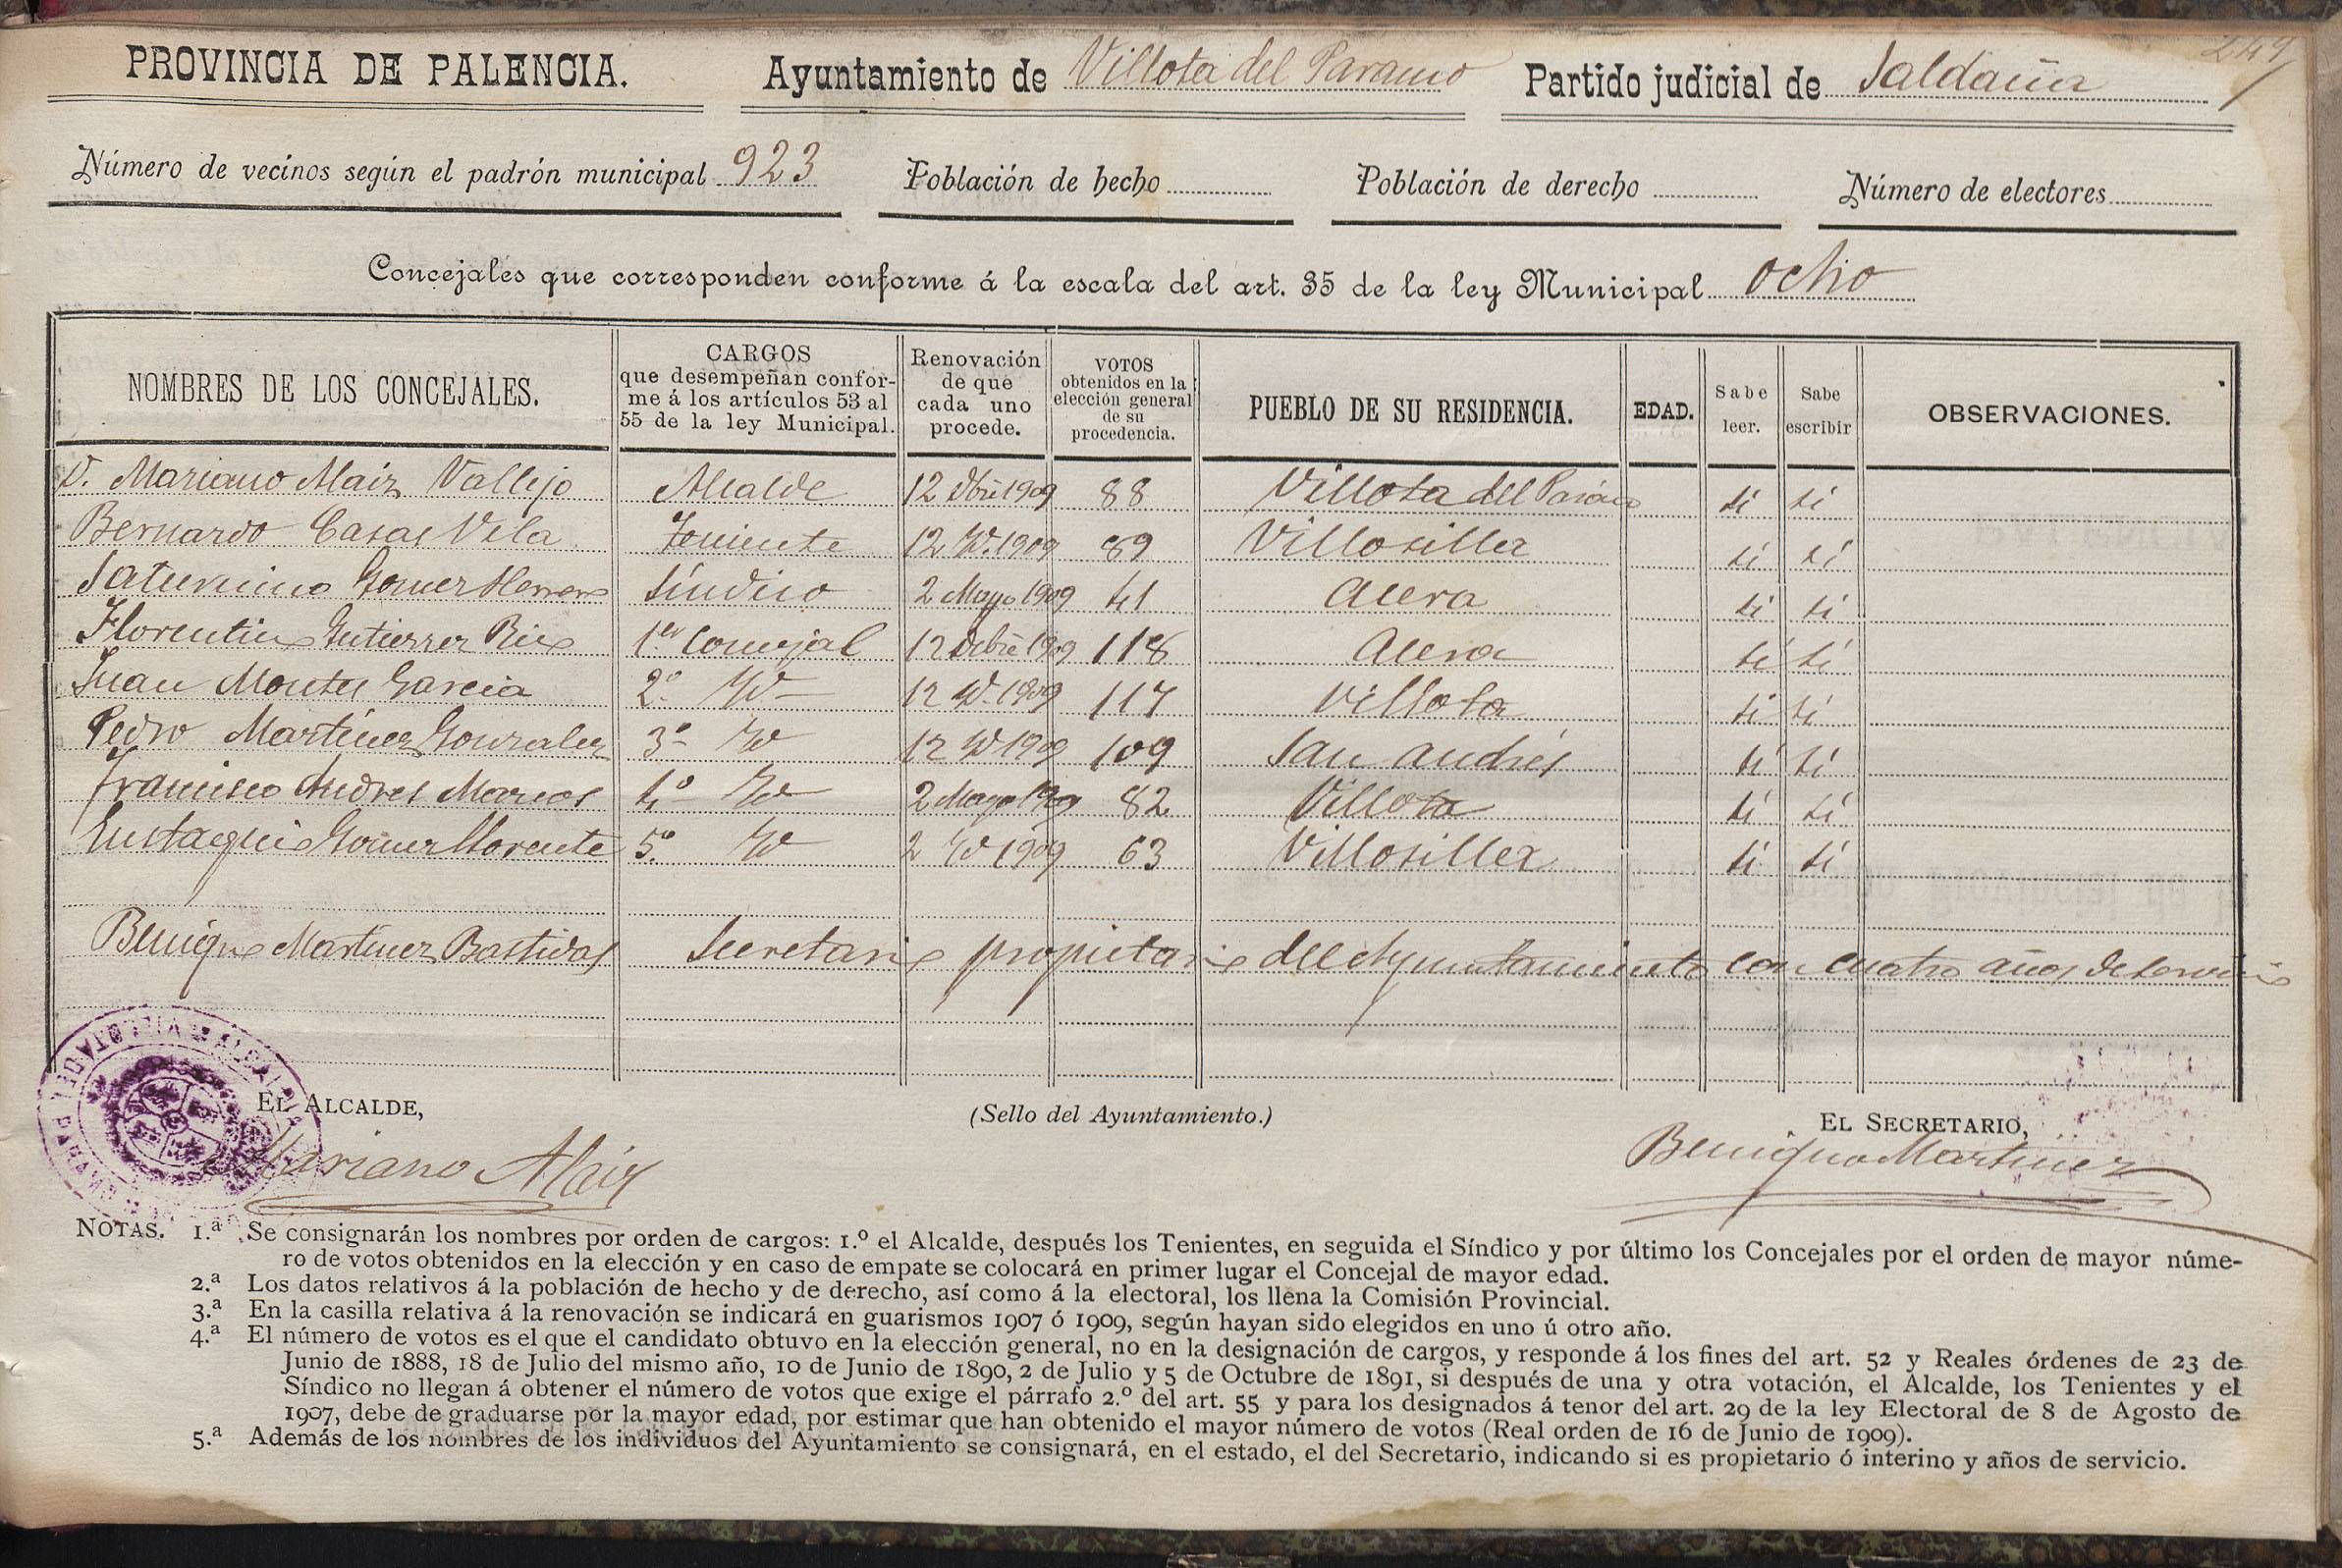 249
PROVINCIA DE PALENCIA. Ayuntamiento de Villota del Paramo Partido judicial de Saldaña
Número de vecinos según el padrón municipal 923 Población de hecho Población de derecho Número de electores
Concejales que corresponden conforme á la escala del art. 35 de la ley Municipal ocho
NOMBRES DE LOS CONCEJALES. CARGOS que desempeñan confor-me á los artículos 53 al 55 de la ley Municipal. Renovación de que cada uno procede. VOTOS obtenidos en la elección general de su procedencia. PUEBLO DE SU RESIDENCIA. EDAD. Sabe leer. Sabe escribir OBSERVACIONES.
D. Mariano Alaiz Vallejo Alcalde 12 Dbre 1909 88 Villota del Páramo si si
Bernardo Casas Vela Teniente 12 Id. 1909 89 Villosilla si si
Saturnino Gomez Herrero Síndico 2 Mayo 1909 41 Acera si si
Florentino Gutierrez Rio 1er Concejal 12 Dcbre 1909 118 Acera si si
Juan Montes Garcia 2º Id 12 Id. 1909 117 Villota si si
Pedro Martínez Gonzalez 3º Id 12 Id 1909 109 San Andrés si si
Francisco Andres Marcos 4º Id 2 Mayo 1909 82 Villota si si
Eustaquio Gomez Llorente 5º Id 2 Id 1909 63 Villosilla si si
Benigno Martinez Bastidas Secretario propietario del Ayuntamiento con cuatro años de servicio
EL ALCALDE, (Sello del Ayuntamiento.) EL SECRETARIO,
Mariano Alaiz Benigno Martinez
NOTAS. 1.ª Se consignarán los nombres por orden de cargos: 1.º el Alcalde, después los Tenientes, en seguida el Síndico y por último los Concejales por el orden de mayor núme-
ro de votos obtenidos en la elección y en caso de empate se colocará en primer lugar el Concejal de mayor edad.
2.ª Los datos relativos á la población de hecho y de derecho, así como á la electoral, los llena la Comisión Provincial.
3.ª En la casilla relativa á la renovación se indicará en guarismos 1907 ó 1909, según hayan sido elegidos en uno ú otro año.
4.ª El número de votos es el que el candidato obtuvo en la elección general, no en la designación de cargos, y responde á los fines del art. 52 y Reales órdenes de 23 de
Junio de 1888, 18 de Julio del mismo año, 10 de Junio de 1890, 2 de Julio y 5 de Octubre de 1891, si después de una y otra votación, el Alcalde, los Tenientes y el
Síndico no llegan á obtener el número de votos que exige el párrafo 2.º del art. 55 y para los designados á tenor del art. 29 de la ley Electoral de 8 de Agosto de
1907, debe de graduarse por la mayor edad, por estimar que han obtenido el mayor número de votos (Real orden de 16 de Junio de 1909).
5.ª Además de los nombres de los individuos del Ayuntamiento se consignará, en el estado, el del Secretario, indicando si es propietario ó interino y años de servicio.